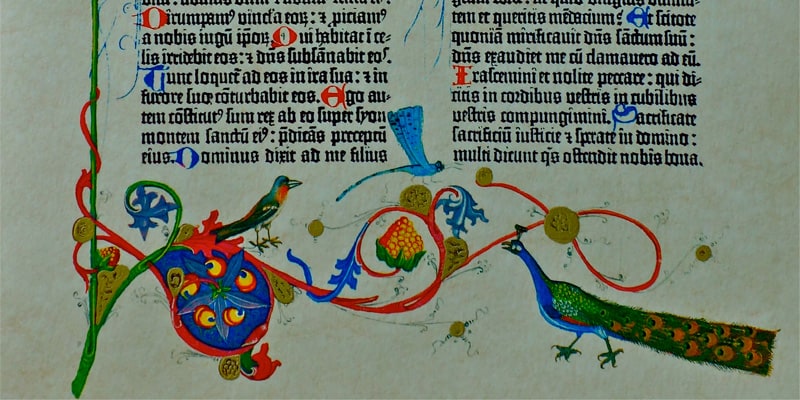 Dirumpam⁹ vincla eoꝝ: ⁊ ꝓiciam⁹
a nobis iugū ipoꝝ. Qui habitat ī ce-
lis irridebit eos: ⁊ dn̄s subsānabit eos.
Tunc loquet̄ ad eos in ira sua: ⁊ in
furore suo cōturbabit eos. Ego au-
tem cōstitut⁹ sum rex ab eo super syon
montem sanctū ei⁹: p̄dicās preceptū
eius. Dominus dixit ad me filius
tem et queritis mēdaciū? Et scitote
quoniā mirificavit dn̄s sāctum suū:
dn̄s exaudiet me cū clamavero ad eū.
Irascemini et nolite peccare: qui di-
citis in cordibus vestris in cubilibus
vestris compungimini. Sacrificate
sacrificiū iusticie ⁊ sp̄ate in domino:
multi dicunt q̄s ostendit nobis bona.